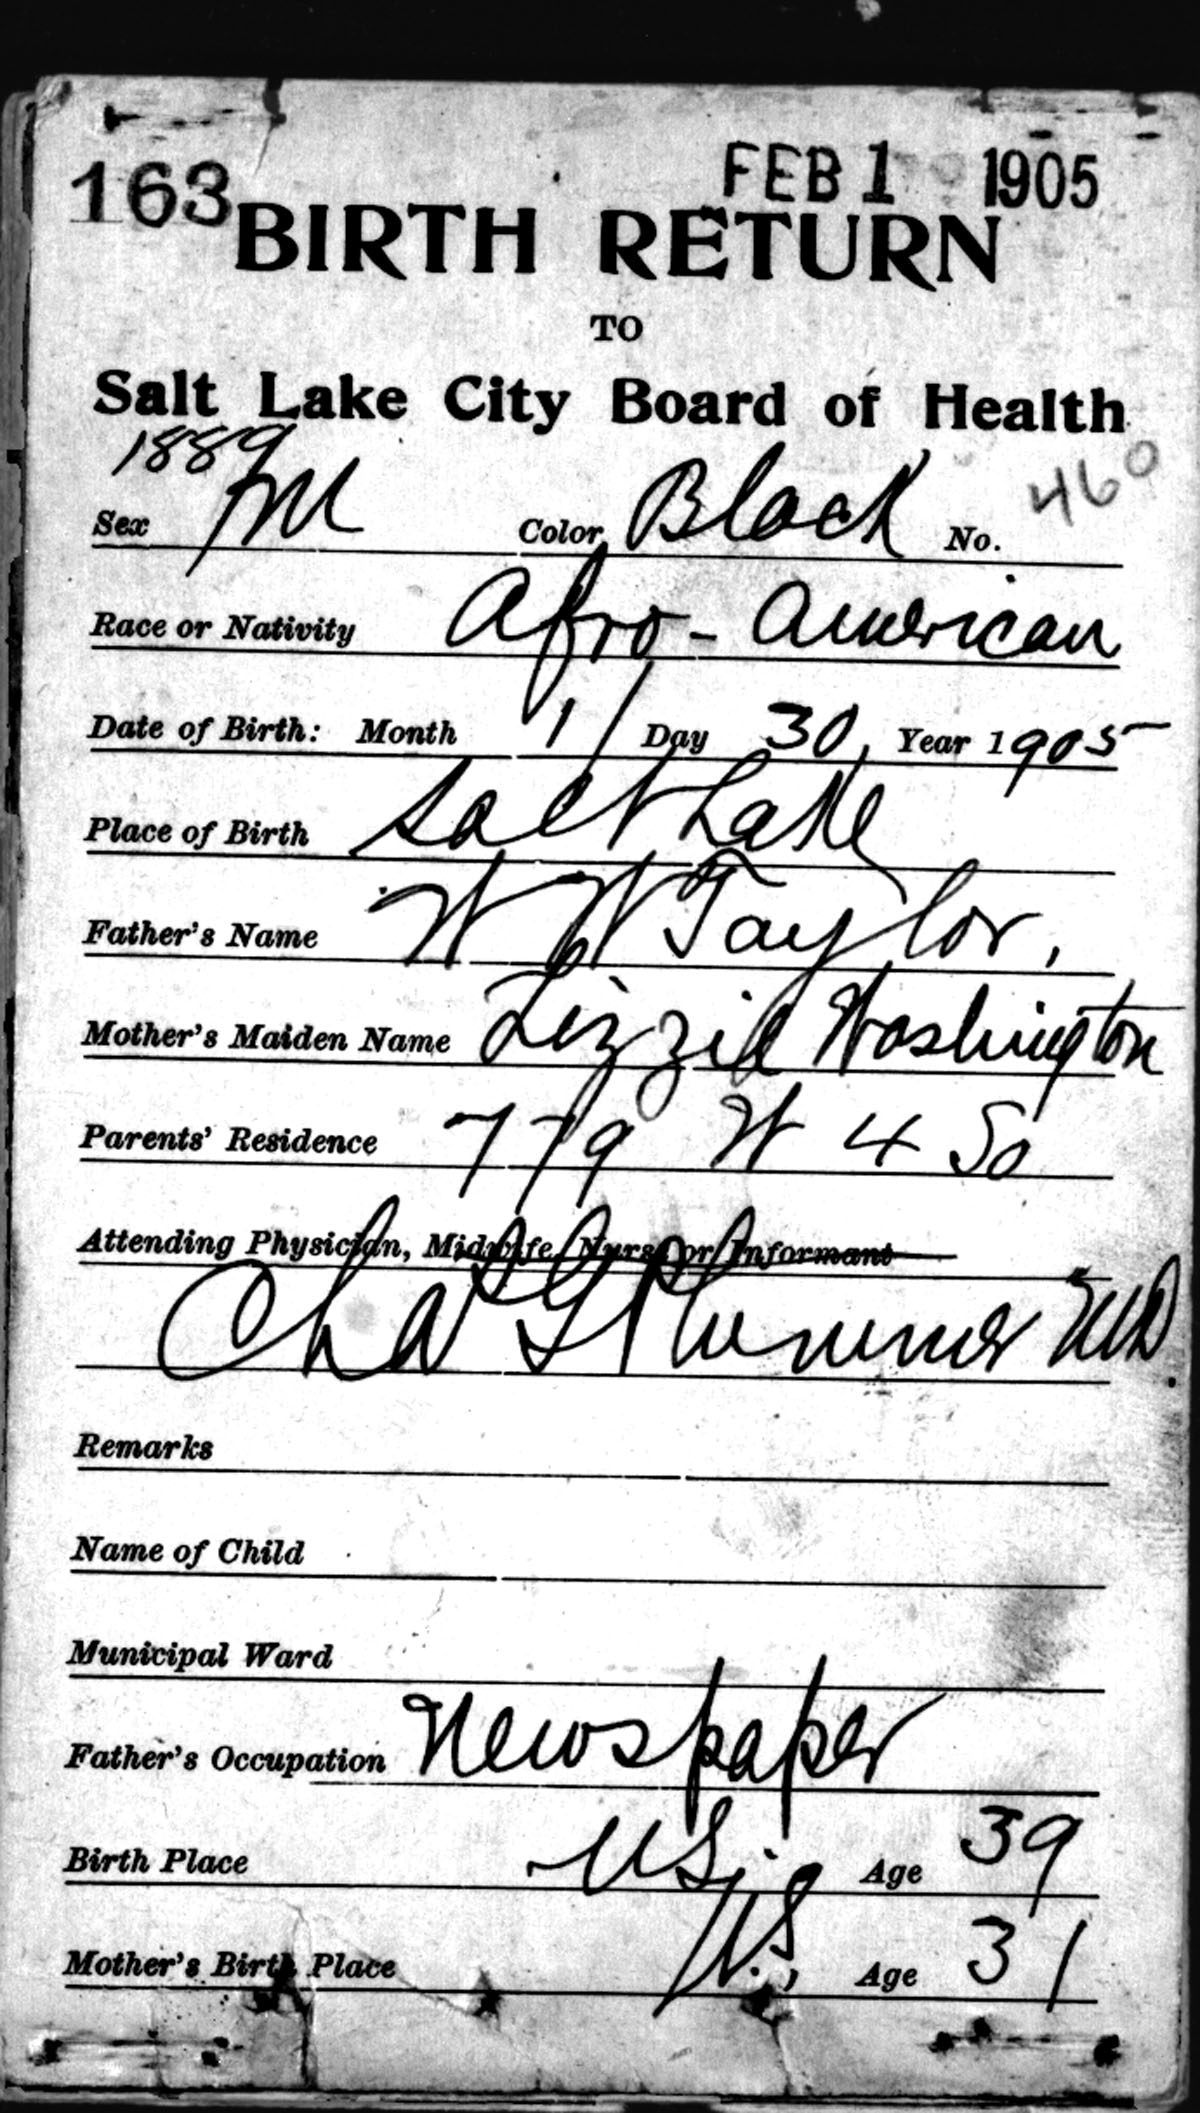 163 FEB 1 1905
BIRTH RETURN
TO
Salt Lake City Board of Health
1889 460
Sex M Color Black No.
Race or Nativity Afro-American
Date of Birth: Month 1 Day 30, Year 1905
Place of Birth Salt Lake
Father's Name W W Taylor,
Mother's Maiden Name Lizzie Washington
Parents' Residence 779 W 4 So
Attending Physician, Midwife, Nurse or Informant
Chas G Plummer MD.
Remarks
Name of Child
Municipal Ward
Father's Occupation Newspaper
Birth Place U.S. Age 39
Mother's Birth Place U.S., Age 31